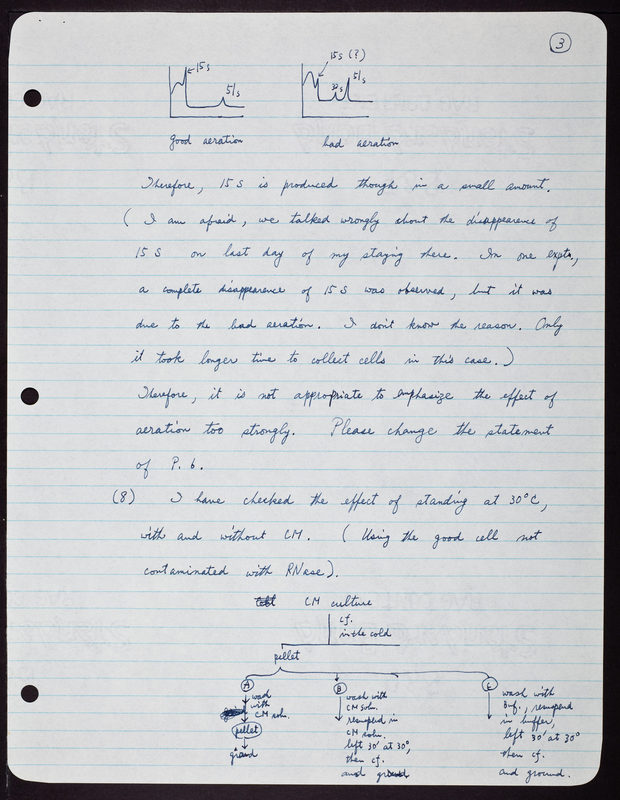 3
15 s
5/s
good aeration
15 s (?)
30 s
5/s
bad aeration
Therefore, 15 S is produced though in a small amount.
( I am afraid, we talked wrongly about the disappearence of
15 S on last day of my staying there. In one expts,
a complete disappearence of 15 S was observed, but it was
due to the bad aeration. I don't know the reason. Only
it took longer time to collect cells in this case.)
Therefore, it is not appropriate to emphasize the effect of
aeration too strongly. Please change the statement
of P. 6.
(8) I have checked the effect of standing at 30°C,
with and without CM. ( Using the good cell not
contaminated with RNase).
CM culture
cf.
in the cold
pellet
A
with
CM soln.
pellet
B
wash with
CM soln.
resuspend in
CM soln.
left 30' at 30°,
then cf.
and ground
C
wash with
buf., resuspend
in buffer,
left 30' at 30°
then cf.
and ground.